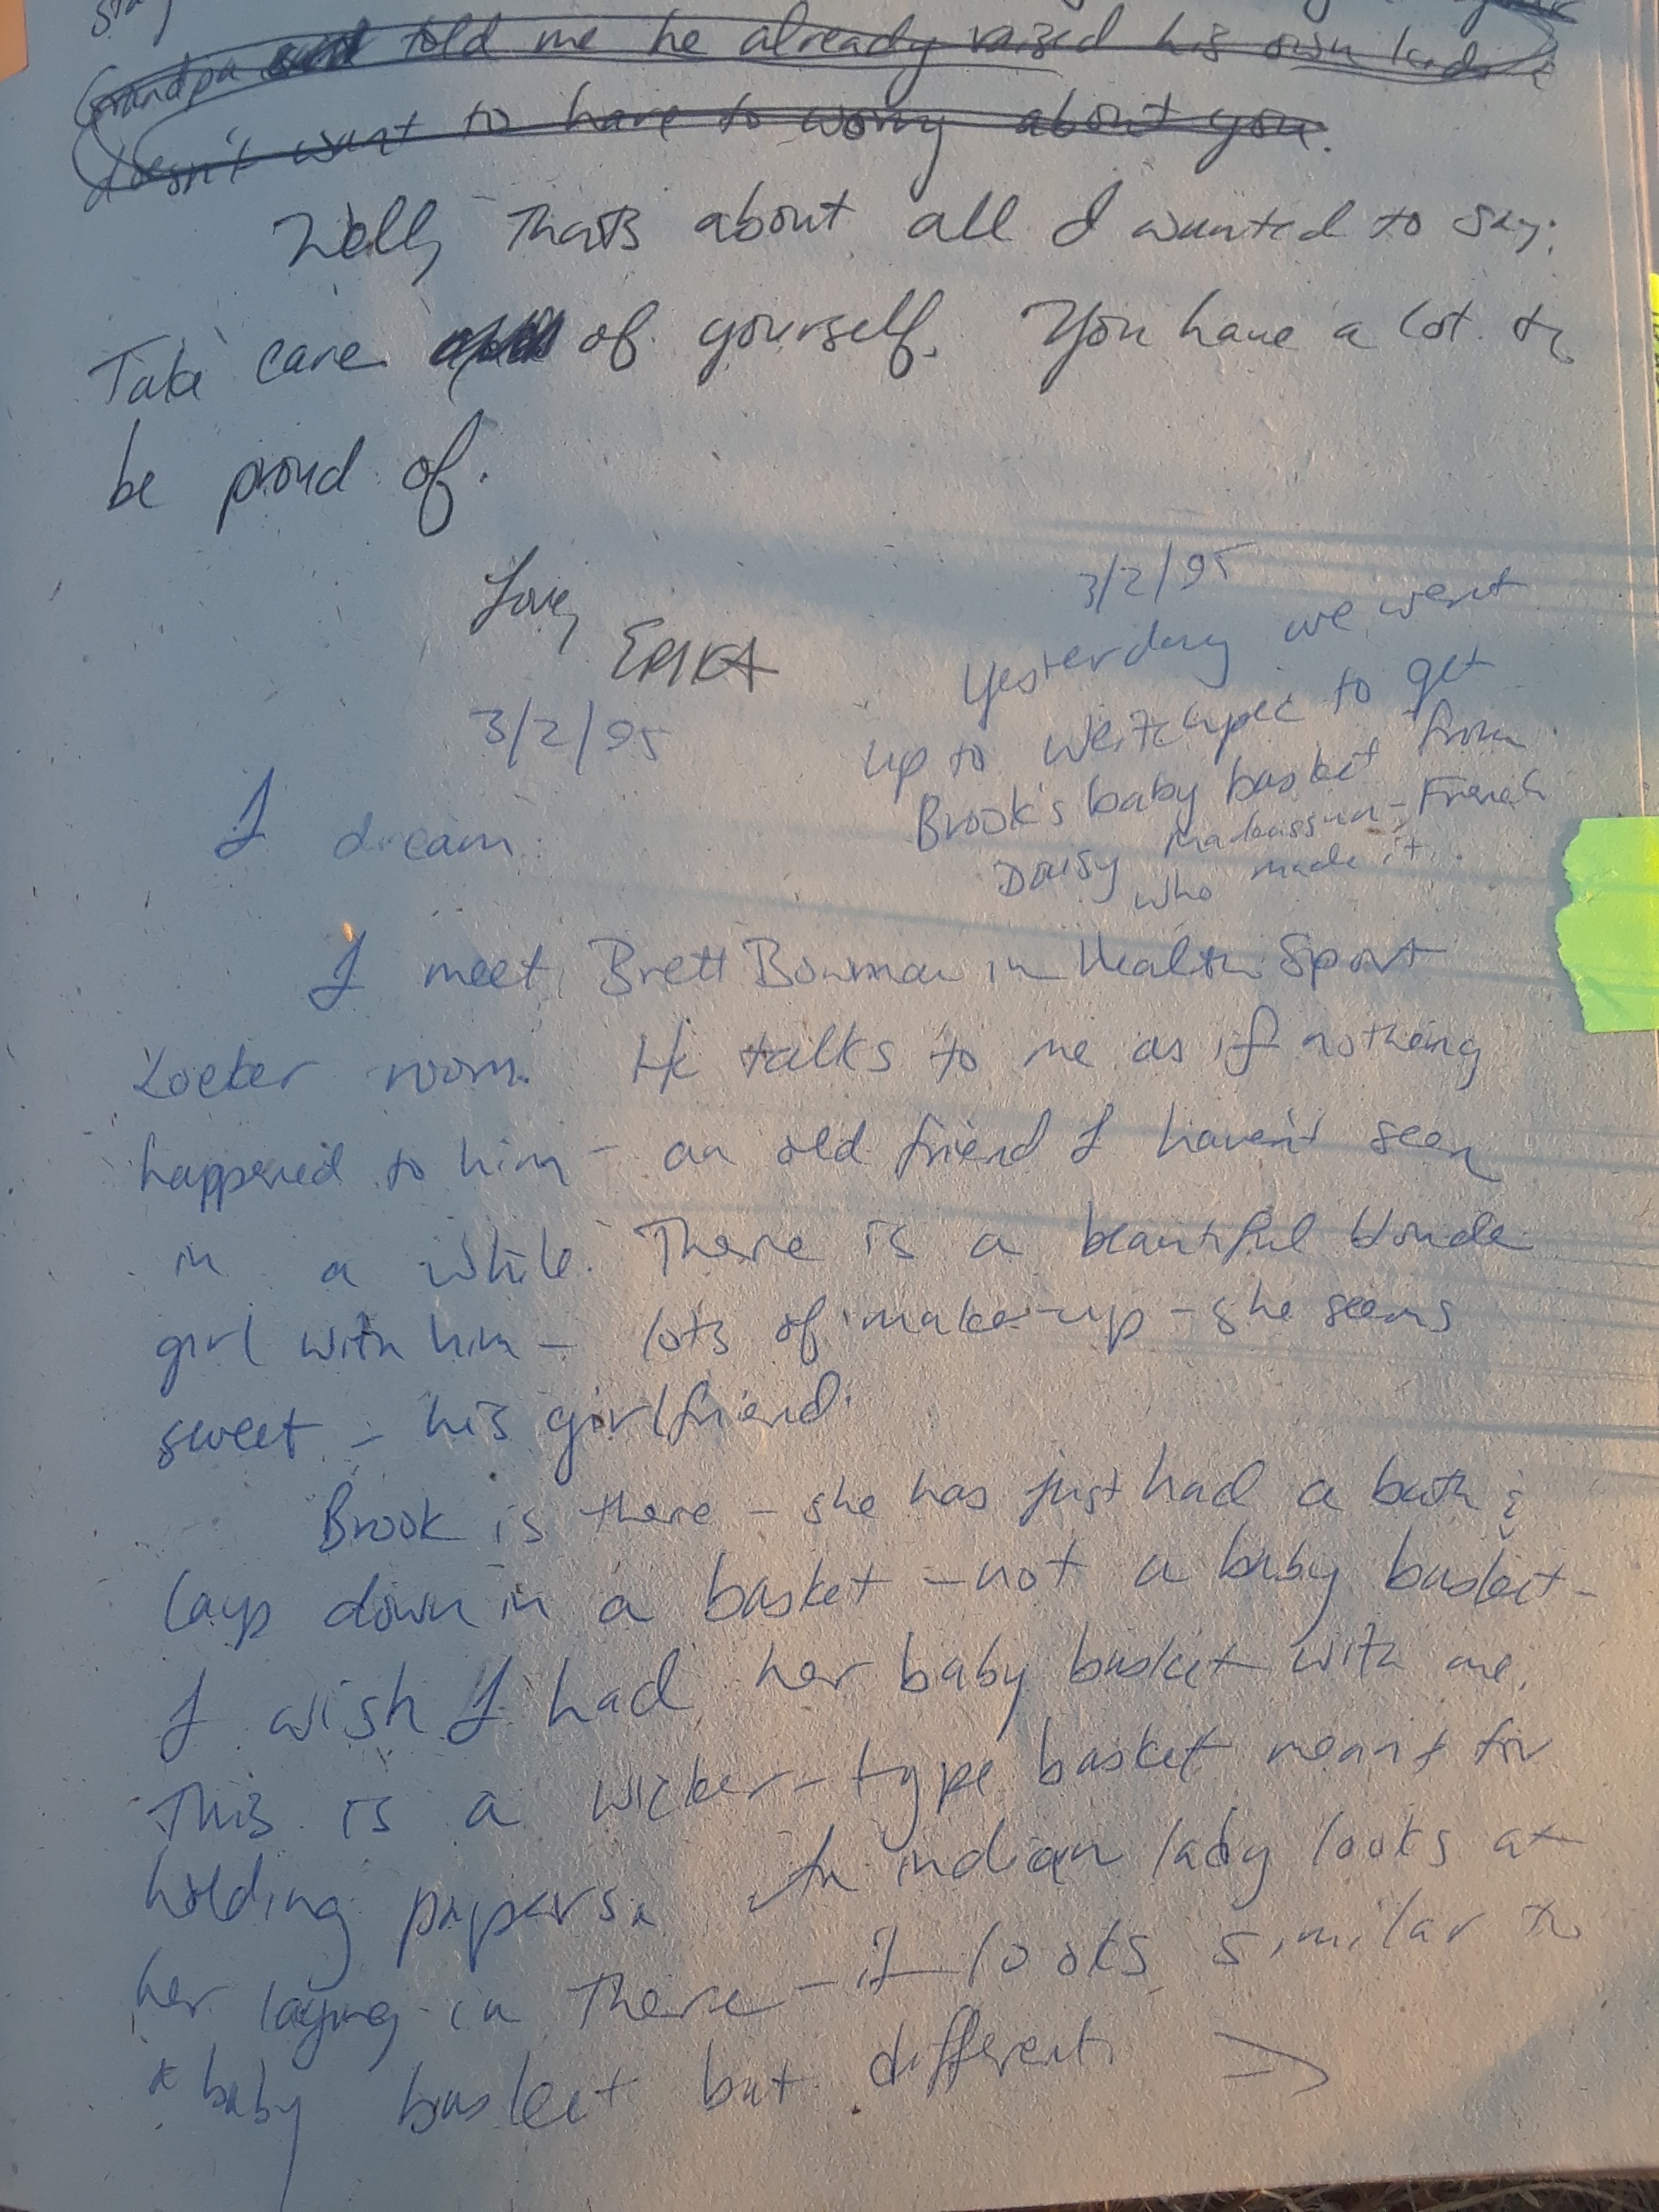 stay
Grandpa told me he already raised his own kids &
doesn't want to have to worry about you.
Well, Thats about all I wanted to say.
Take care of yourself. You have a lot to
be proud of.
Love,
ERIKA
3/2/95
3/2/95
Yesterday we went
up to Weitchpec to get
Brook's baby basket from
Daisy French
who made it.
I dream.
I meet Brett Bowman in Health Sport
Locker room. He talks to me as if nothing
happened to him - an old friend I haven't seen
in a while. There is a beautiful blonde
girl with him - lots of make-up - she seems
sweet - his girlfriend.
Brook is there - she has just had a bath &
lays down in a basket - not a baby basket -
I wish I had her baby basket with me.
This is a wicker-type basket meant for
holding papers. An indian lady looks at
her laying in there - it looks similar to
a baby basket but different. >